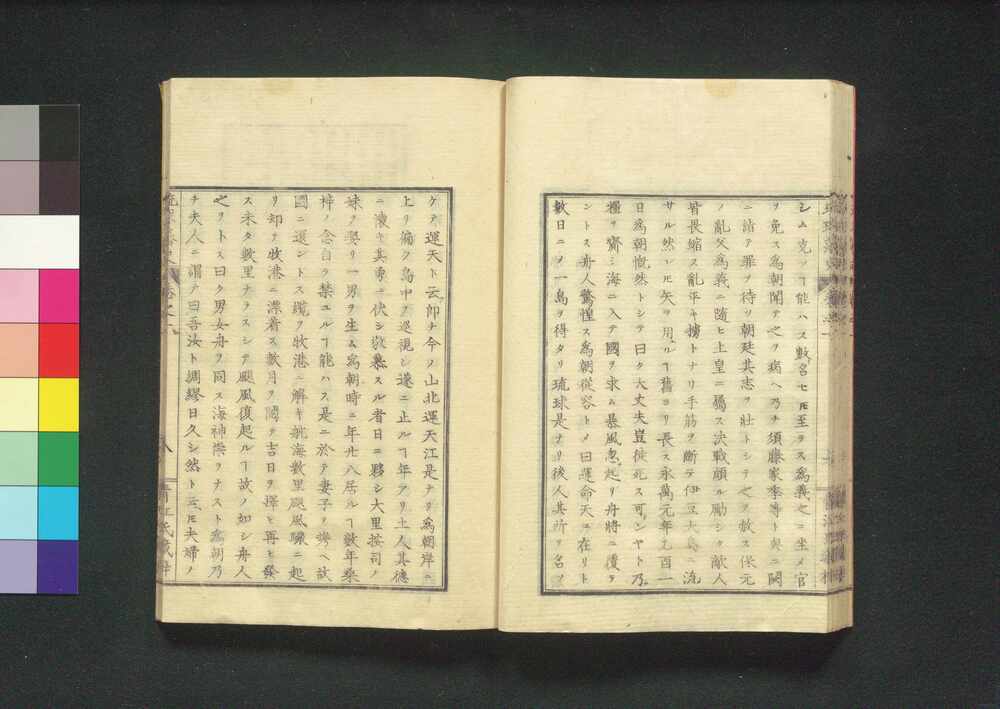 シム克ッヿ能ハス數名セ𪜈至ラス爲義之ニ坐メ官
ヲ免ス爲朝聞テ之ヲ病ヘ乃チ須藤家季等ト與ニ闕
ニ詣テ罪ヲ待ツ朝廷其志ヲ壮トシテ之ヲ赦ス保元
ノ亂父爲義ニ随ヒ上皇ニ屬ス決戰頗ル勵シク敵人
皆畏縮ス亂平キ擒トナリ手筋ヲ斷テ伊豆大島ニ流
サル然レ𪜈矢ヲ用ルヿ舊ヨリ長ス永萬元年乙酉一
日爲朝慨然トシテ曰ク大丈夫豈徒死ス可ンヤト乃
糧ヲ齎シ海ニ入テ國ヲ求ム暴風急起リ舟將ニ覆ラ
ントス舟人驚惶ス爲朝從容トメ曰運命天ニ在リト
數日ニメ一島ヲ得タリ琉球是ナリ後人其所ヲ名ヲ
ケテ運天ト云即チ今ノ山北運天江是ナリ爲朝岸ニ
上リ偏ク島中ヲ巡視シ遂ニ止ルヿ年アリ土人其德
ニ懷キ其勇ニ伏シ敬慕スル者日ニ夥シ大里按司ノ
妹ヲ娶リ一男ヲ生ム爲朝時ニ年廿八居ルヿ數年桑
梓ノ念自ラ禁ユルヿ能ハス是ニ於テ妻子ヲ携ヘ故
國ニ還ントス纜ヲ牧港ニ解キ航海數里颶風驟ニ起
リ却テ牧港ニ漂着ス數月ヲ閲テ吉日ヲ擇ヒ再ヒ發
ス未タ數里ナラスシテ颶風復起ルヿ故ノ如シ舟人
之ヲトス曰ク男女舟ヲ同ス海神祟ヲナスト爲朝乃
チ夫人ニ謂テ曰吾汝ト綢繆日久シ然ト云𪜈夫婦ノ